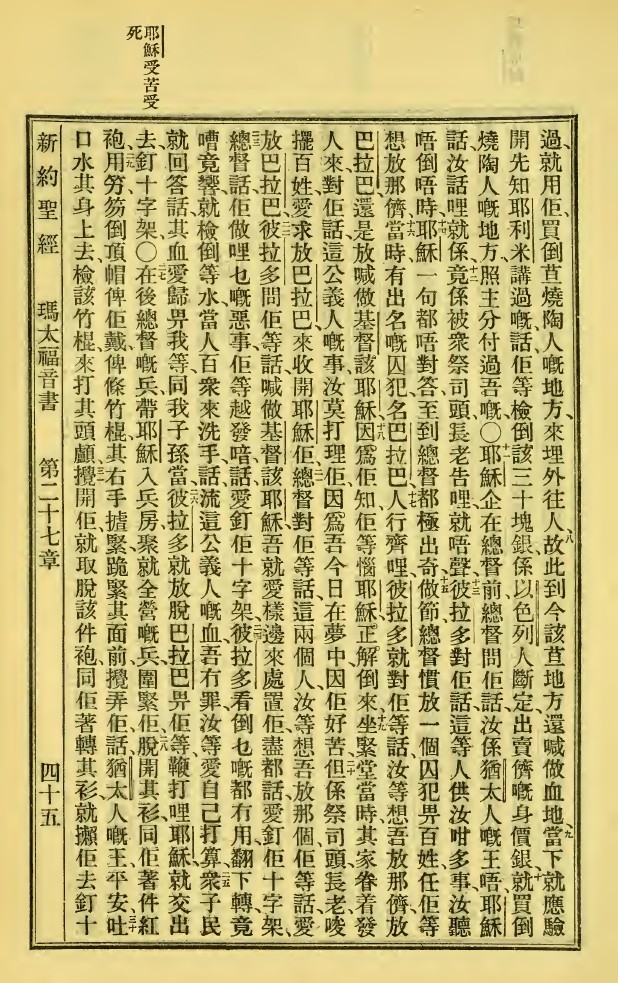 耶穌受苦受
死
過、就用佢買倒苴燒陶人嘅地方、來埋外往人、故此到今該苴地方、還喊做血地、當下就應驗
開先知耶利米講過嘅話、佢等檢倒該三十塊銀、係以色列人斷定出賣儕嘅身價銀、就買倒
燒陶人嘅地方、照主分付過吾嘅○耶穌企在總督前、總督問佢話、汝係猶太人嘅王唔、耶穌
話、汝話哩就係、竟係被衆祭司頭長老告哩、就唔聲、彼拉多對佢話、這等人供汝咁多事、汝聽
唔倒唔時、耶穌一句都唔對答、至到總督都極出奇、做節總督慣放一個囚犯畀百姓、任佢等
想放那儕、當時有出名嘅囚犯、名巴拉巴、人行齊哩、彼拉多就對佢等話、汝等想吾放那儕、放
巴拉巴、還是放喊做基督該耶穌、因爲佢知佢等惱耶穌、正解倒來、坐緊堂當時、其家眷着發
人來對佢話、這公義人嘅事、汝莫打理佢、因爲吾今日在夢中、因佢好苦、但係祭司頭長老唆
擺百姓、愛求放巴拉巴、來收開耶穌佢、總督對佢等話、這兩個人、汝等想吾放那個、佢等話、愛
放巴拉巴、彼拉多問佢等話、喊做基督該耶穌、吾就愛樣邊來處置佢、盡都話、愛釘佢十字架、
總督話、佢做哩乜嘅惡事、佢等越發喑話、愛釘佢十字架、彼拉多看倒乜嘅都冇用、翻下轉竟
嘈竟響、就檢倒等水、當人百衆來洗手、話、流這公義人嘅血、吾冇罪、汝等愛自己打算、衆子民
就回答話、其血愛歸畀我等、同我子孫、當彼拉多就放脫巴拉巴畀佢等、鞭打哩耶穌、就交出
去釘十字架○在後總督嘅兵、帶耶穌入兵房、聚就全營嘅兵圍緊佢、脫開其衫、同佢著件紅
袍、用竻竻倒頂帽俾佢戴、俾條竹棍其右手揸緊、跪緊其面前、攪弄佢話、猶太人嘅王平安、吐
口水其身上去、檢該竹棍來打其頭顱、攪開佢、就取脫該件袍、同佢著轉其衫、就攋佢去釘十
新約聖經 瑪太福音書 第二十七章 四十五